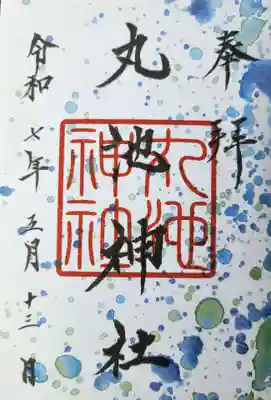 奉拝
丸池神社
丸池神社
令和七年五月十三日